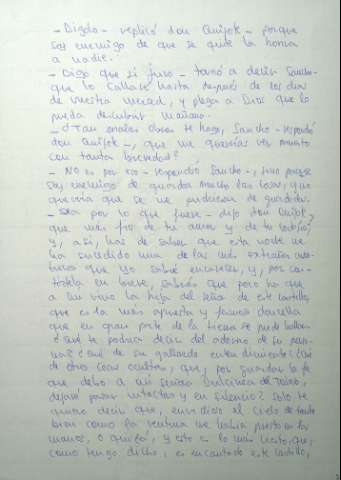 - Dígolo - replicó don Quijote - porque
soy enemigo de que se quite la honra
a nadie.
- Digo que sí juro - tornó a decir Sancho -
que lo callaré hasta después de los días
de vuestra merced, y plega a Dios que lo
pueda descubrir mañana.
- ¿Tan malas obras te hago, Sancho - respondió
don Quijote -, que me querrías ver muerto
con tanta brevedad?
- No es por eso - respondió Sancho -, sino porque
soy enemigo de guardar mucho las cosas, y no
querría que se me pudriesen de guardadas.
- Sea por lo que fuere - dijo don Quijote,
que más fío de tu amor y de tu cortesía;
y, así, has de saber que esta noche me
ha sucedido una de las más extrañas aven-
turas que yo sabré encarecer, y, por con-
tártela en breve, sabrás que poco ha que
a mí vino la hija del señor de este castillo,
que es la más apuesta y fermosa doncella
que en gran parte de la tierra se puede hallar.
¿Qué te podría decir del adorno de su perso-
na? ¿Qué de su gallardo entendimiento? ¿Qué
de otras cosas ocultas, que, por guardar la fe
que debo a mi señora Dulcinea del Toboso,
dejaré pasar intactas y en silencio? Solo te
quiero decir que, envidioso el cielo de tanto
bien como la ventura me había puesto en las
manos, o quizá, y esto es lo más cierto, que,
como tengo dicho, es encantado este castillo,